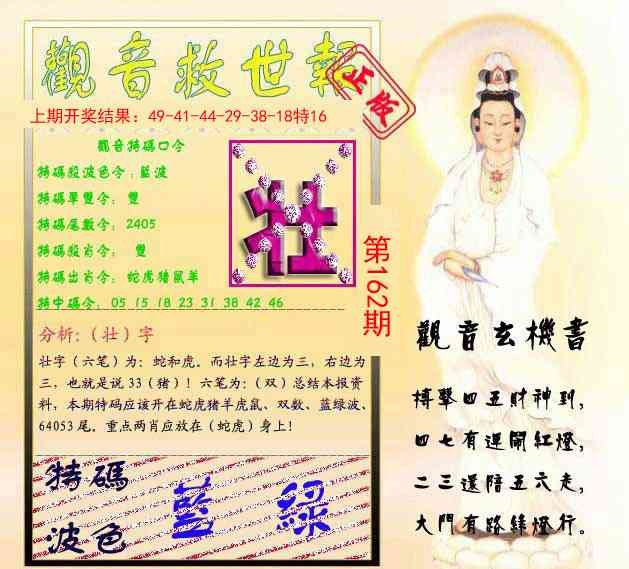 觀音救世報
正版
上期开奖结果：49-41-44-29-38-18特16
觀音特碼口令
特碼殺波色令：藍波
特碼單雙令： 雙
特碼尾數令： 2405
特碼殺肖令： 雙
特碼出肖令： 蛇虎猪鼠羊
特中碼令： 05 15 18 23 31 38 42 46
壮
第162期
分析:（壮）字
壮字（六笔）为: 蛇和虎。而壮字左边为三，右边为
三，也就是说 33（猪）！六笔为:（双）总结本报资
料，本期特码应该开在蛇虎猪羊虎鼠、双数、蓝绿波、
64053 尾。重点两肖应放在（蛇虎）身上！
特碼
波色
藍 綠
觀音玄機書
搏擊四五財神到，
四七有運鬧紅燈，
二三還陪五六走，
大門有路綠燈行。